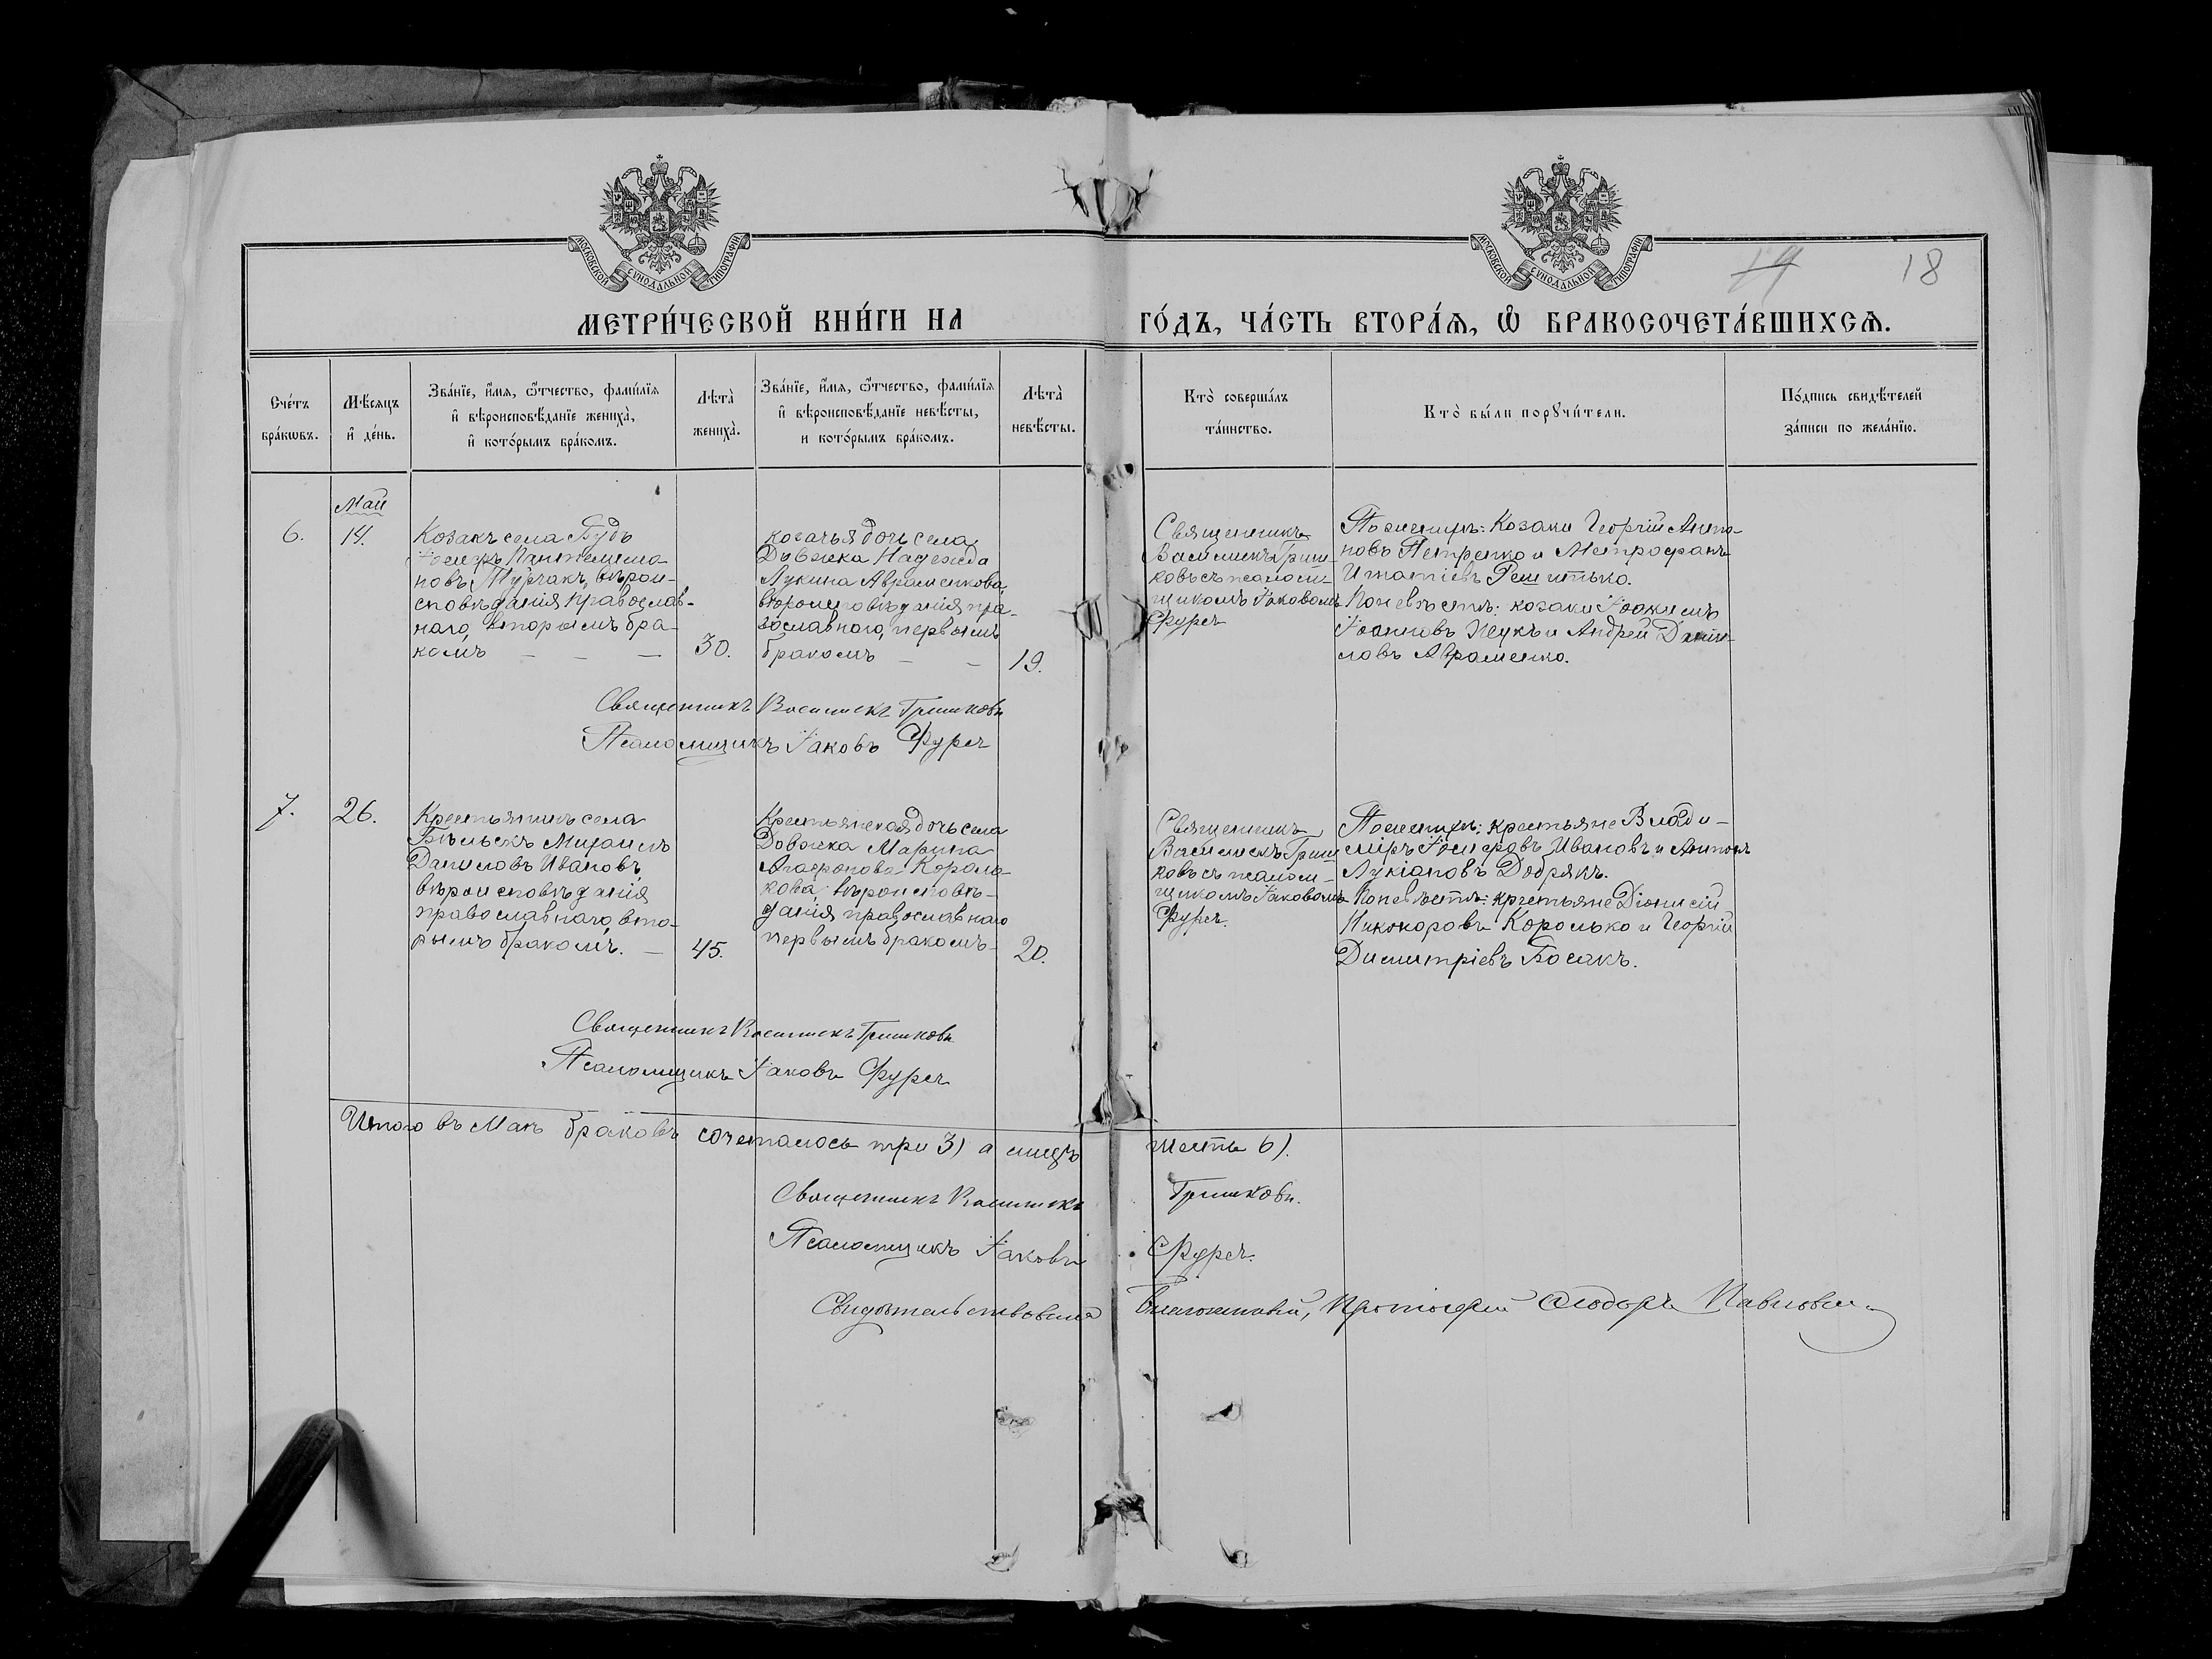 МОСКОВСКОЙ СѴНОДАЛЬНОЙ ТИПОГРАФІИ
МОСКОВСКОЙ СѴНОДАЛЬНОЙ ТИПОГРАФІИ
18
МЕТРИ́ЧЕСКОЙ КНИ́ГИ НА ГО́ДЪ, ЧА́СТЬ ВТОРА́Ѧ, Ѽ БРАКОСОЧЕТА́ВШИХСѦ.
Сче́тъ
бра́кωвъ.
Мѣ́сяцъ
и҆ де́нь.
Зва́нїе, и҆́мя, ѻ҆́тчество, фами́лїя
и҆ вѣроисповѣ́данїе жениха̀,
и҆ кото́рымъ бра́комъ.
Лѣта̀
жениха̀.
Зва́нїе, и҆́мя, ѻ҆́тчество, фами́лїя
и҆ вѣроисповѣ́данїе невѣ́сты,
и кото́рымъ бра́комъ.
Лѣта̀
невѣ́сты.
Кто̀ соверша́лъ
та́инство.
Кто̀ бы́ли порꙋчи́тели.
По́дпись свидѣ́телей
за́писи по жела́нїю.
6.
Май
14.
Козакъ села Будъ
Іосифъ Пантелеимо-
новъ Турчакъ, вѣрои-
сповѣданія православ-
наго, вторымъ бра-
комъ — — —
30.
козачья дочь села
Довжика Надежда
Лукина Авраменкова,
вѣроисповѣданія пра-
вославного, первымъ
бракомъ — —
19.
Священникъ
Василискъ Гриш-
ковъ съ псалом-
щикомъ Іаковомъ
Фурсъ
По женихѣ: Козаки Георгій Анто-
новъ Петренко и Митрофанъ
Игнатіевъ Решитько.
По невѣстѣ: козаки Іоакимъ
Іоанновъ Жукъ и Андрей Дани-
ловъ Авраменко.
Священникъ Василискъ Гришковъ
Псаломщикъ Іаковъ Фурсъ
7.
26.
Крестьянинъ села
Бѣльскъ Михаилъ
Даниловъ Ивановъ,
вѣроисповѣданія
православнаго, вто-
рымъ бракомъ. —
45.
Крестьянская дочь села
Довжика Марина
Агафонова Король-
кова, вѣроисповѣ-
данія православнаго
первымъ бракомъ —
20.
Священникъ
Василискъ Гриш
ковъ съ псалом-
щикомъ Іаковомъ
Фурсъ.
По женихѣ: крестьяне Влади-
міръ Іосифовъ Ивановъ и Антонъ
Лукіановъ Добрякъ.
По невѣстѣ: крестьяне Діонисій
Никоноровъ Королько и Георгій
Димитріевъ Босакъ.
Священникъ Василискъ Гришковъ
Псаломщикъ Іаковъ Фурсъ
Итого въ Маѣ браковъ сочеталось три 3) а лицъ шесть 6).
Священникъ Василискъ Гришковъ.
Псаломщикъ Іаковъ Фурсъ.
Свидѣтельствовалъ Благочинный, Протоіерей Ѳеодоръ Павловъ